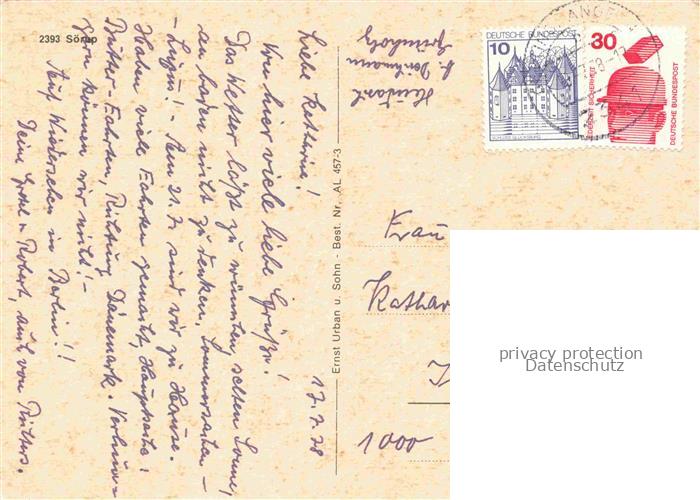 2393 Sörup
17.7.78
Liebe Kathrine!
Von hier viele liebe Grüße!
Das Wetter läßt zu wünschen, selten Sonne,
an baden nicht zu denken. Sommersaiten –
– Lügen! – Am 21.7. sind wir zu Hause.
Haben viele Fahrten gemacht, Hauptsache!
Butter-Fahrten, Richtung Dänemark.
können wir nicht! –
Auf Wiedersehen in Berlin!!
Deine u. Robert, auch von
Ernst Urban u. Sohn - Best. Nr. AL 457-3
DEUTSCHE BUNDESPOST
10
SCHLOSS GLÜCKSBURG
30
JEDERZEIT SICHERHEIT
DEUTSCHE BUNDESPOST
Frau
Kathar
1000
privacy protection
Datenschutz